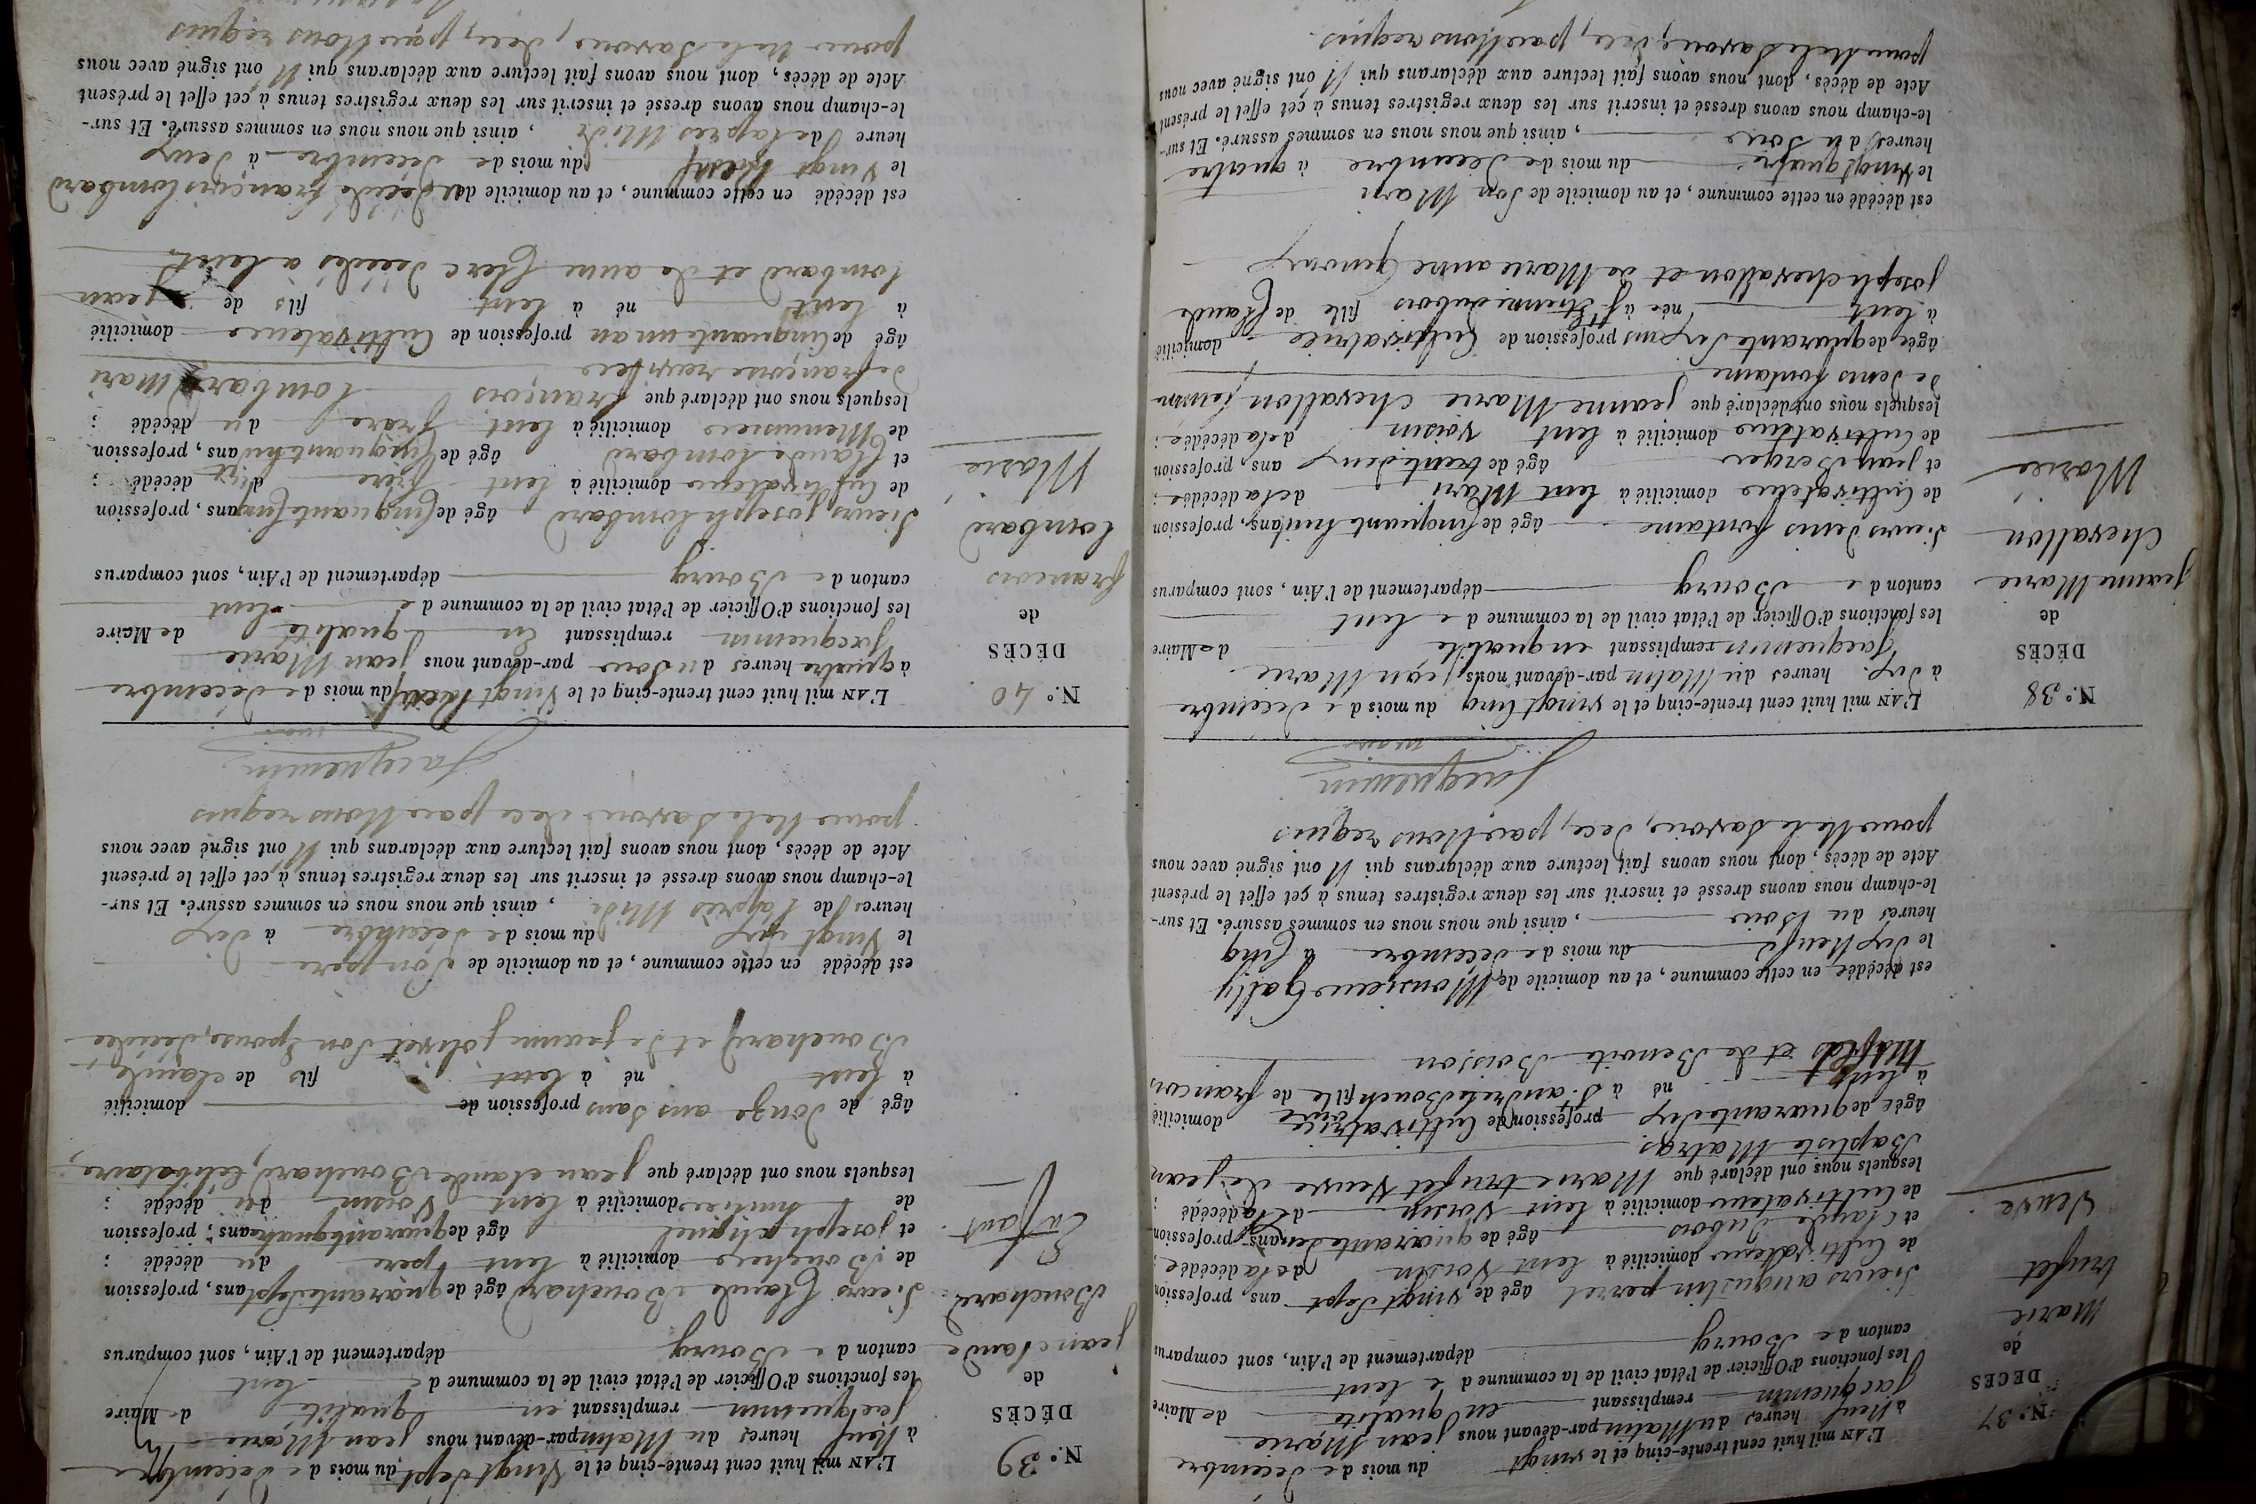 N.° 37
DÉCÈS
de
Marie
trufet
Veuve
L'AN mil huit cent trente-cinq et le vingt du mois de décembre
à Neuf heures du Matin par-devant nous jean Marie
Jacquemin remplissant en qualité de Maire
les fonctions d'Officier de l'état civil de la commune de lent
canton de Bourg département de l'Ain, sont comparus
Sieurs augustin perret âgé de vingt Sept ans, profession
de Cultivateur domicilié à lent Voisin de la décédée ;
et Claude Dubois âgé de quarante deux ans, profession
de Cultivateur domicilié à lent Voisin de la décédée ;
lesquels nous ont déclaré que Marie trufet Veuve de jean
Baptiste Matras
âgée de quarante dix profession de Cultivatrice domicilié
à lent né à St. andré le Bouch fille de françois
et de Benoite Boisson
est décédée en cette commune, et au domicile de Monsieur Gally
le dix Neuf du mois de décembre à Cinq
heures du Soir , ainsi que nous nous en sommes assuré. Et sur-
le-champ nous avons dressé et inscrit sur les deux registres tenus à cet effet le présent
Acte de décès, dont nous avons fait lecture aux déclarans qui N ont signé avec nous
pour Ne le Savoir, de ce, par Nous requis
Jacquemin
maire
N.° 38
DÉCÈS
de
jeanne Marie
Chevallon
Mariée
L'AN mil huit cent trente-cinq et le vingt Cinq du mois de décembre
à dix heures du Matin par-devant nous jean Marie
Jacquemin remplissant en qualité de Maire
les fonctions d'Officier de l'état civil de la commune de lent
canton de Bourg département de l'Ain, sont comparus
Sieurs Denis fontaine âgé de Cinquante huit ans, profession
de Cultivateur domicilié à lent Mari de la décédée ;
et jean Berger âgé de trente deux ans, profession
de Cultivateur domicilié à lent Voisin de la décédée ;
lesquels nous ont déclaré que jeanne Marie Chevallon femme
de Denis fontaine
âgée de quarante Six ans profession de Cultivatrice domicilié
à lent née à St. Etienne dubois fille de Claude
joseph Chevallon et de Marie anne
est décédée en cette commune, et au domicile de Son Mari
le Vingt quatre du mois de décembre à quatre
heures du Soir , ainsi que nous nous en sommes assuré. Et sur-
le-champ nous avons dressé et inscrit sur les deux registres tenus à cet effet le présent
Acte de décès, dont nous avons fait lecture aux déclarans qui N ont signé avec nous
pour Ne le Savoir, de ce, par Nous requis.
N.° 39
DÉCÈS
de
jean Claude
Bouchard
Enfant
L'AN mil huit cent trente-cinq et le Vingt Sept du mois de décembre
à Neuf heures du Matin par-devant nous jean Marie
Jacquemin remplissant en qualité de Maire
les fonctions d'Officier de l'état civil de la commune de lent
canton de Bourg département de l'Ain, sont comparus
Sieurs Claude Bouchard âgé de quarante Sept ans, profession
de Boucher domicilié à lent père du décédé ;
et joseph âgé de quarante quatre ans, profession
de domicilié à lent Voisin du décédé ;
lesquels nous ont déclaré que jean claude Bouchard, Célibataire,
âgé de Douze ans Sans profession de domicilié
à lent né à lent fils de claude
Bouchard et de jeanne jolivet Son Epouse, décédée
est décédé en cette commune, et au domicile de Son père
le Vingt Six du mois de décembre à dix
heures de l'après Midi , ainsi que nous nous en sommes assuré. Et sur-
le-champ nous avons dressé et inscrit sur les deux registres tenus à cet effet le présent
Acte de décès, dont nous avons fait lecture aux déclarans qui N ont signé avec nous
pour Ne le Savoir de ce par Nous requis
Jacquemin
maire
N.° 40
DÉCÈS
de
francois
lombard
Marié
L'AN mil huit cent trente-cinq et le Vingt Neuf du mois de décembre
à quatre heures du Soir par-devant nous jean Marie
Jacquemin remplissant En qualité de Maire
les fonctions d'Officier de l'état civil de la commune de lent
canton de Bourg département de l'Ain, sont comparus
Sieurs joseph lombard âgé de Cinquante Cinq ans, profession
de Cultivateur domicilié à lent frère du décédé ;
et Claude lombard âgé de Cinquante huit ans, profession
de Menuisier domicilié à lent frère du décédé ;
lesquels nous ont déclaré que françois lombard Mari
de françoise
âgé de Cinquante un an profession de Cultivateur domicilié
à lent né à lent fils de jean
lombard et de anne Clerc décédés à lent
est décédé en cette commune, et au domicile du décédé françois lombard
le Vingt Neuf du mois de décembre à deux
heure de l'après Midi , ainsi que nous nous en sommes assuré. Et sur-
le-champ nous avons dressé et inscrit sur les deux registres tenus à cet effet le présent
Acte de décès, dont nous avons fait lecture aux déclarans qui N ont signé avec nous
pour Ne le Savoir, de ce, par Nous requis